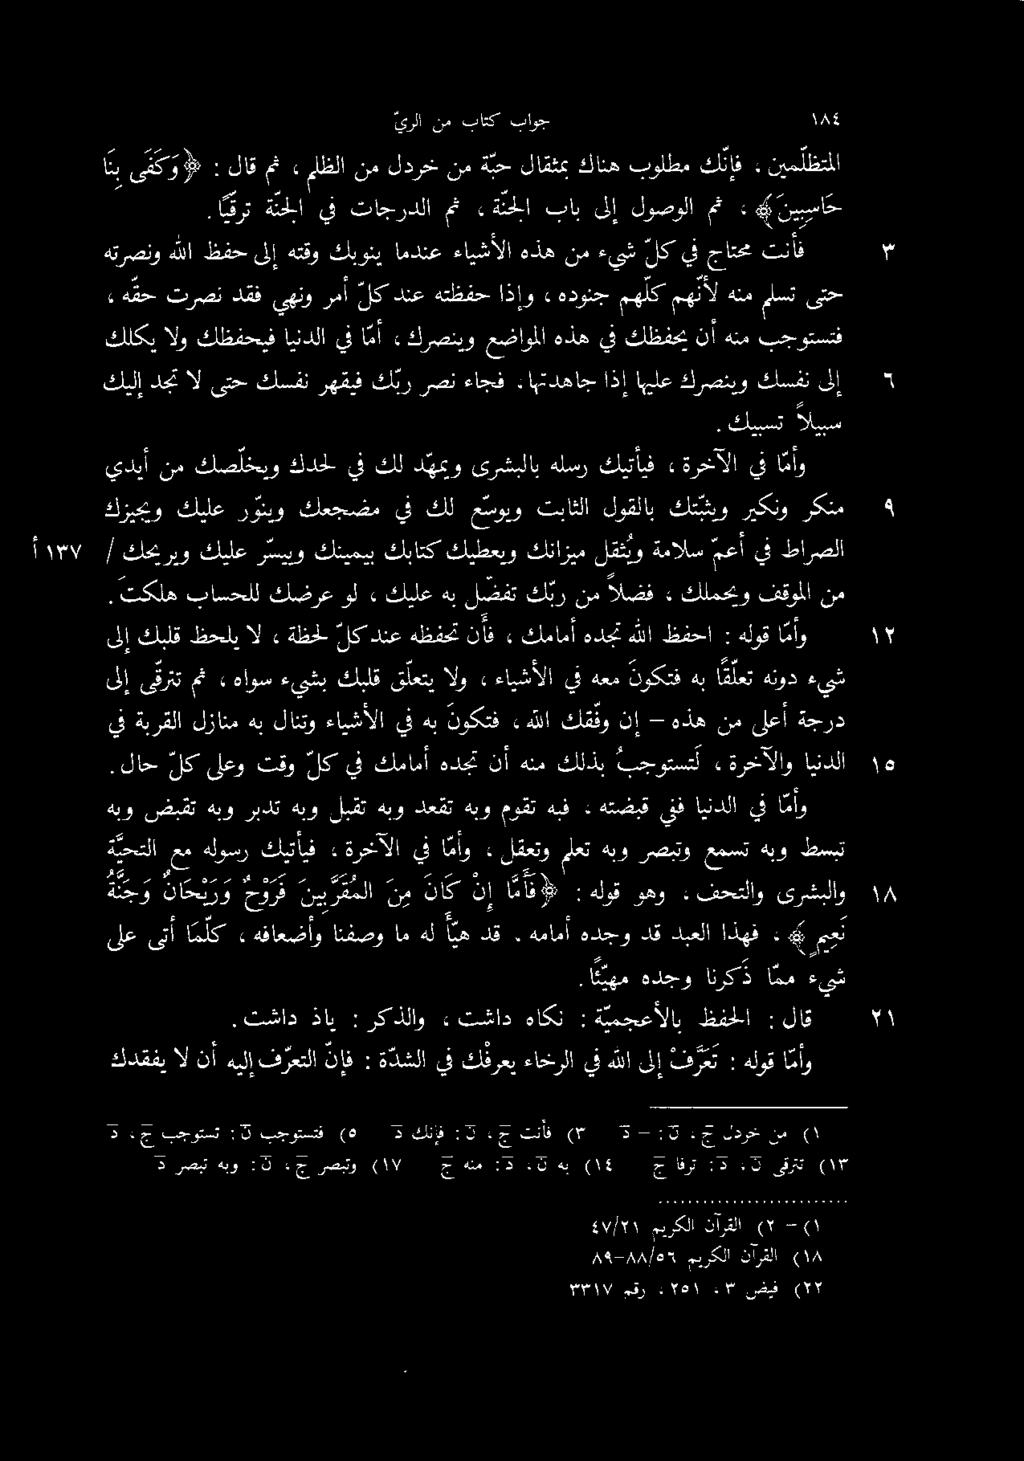 ١٨٤ جواب كتاب من الريّ
المتظلّمين ، فإنّك مطلوب هناك بمثقال حبّة من خردل من الظلم ، ثم قال : ﴿وَكَفَى بِنَا
حَاسِبِينَ﴾ ، ثم الوصول إلى باب الجنّة ، ثم الدرجات في الجنّة ترقّيًا .
٣ فأنت محتاج في كلّ شيء من هذه الأشياء عندما ينوبك وقته إلى حفظ الله ونصرته
حتى تسلم منه لأنّهم كلّهم جنوده ، وإذا حفظته عند كلّ أمر ونهي فقد نصرت حقّه ،
فتستوجب منه أن يحفظك في هذه المواضع وينصرك ، أمّا في الدنيا فيحفظك ولا يكلك
٦ إلى نفسك وينصرك عليها إذا جاهدتها . فجاء نصر ربّك فيقهر نفسك حتى لا تجد إليك
سبيلاً تسبيك .
وأمّا في الآخرة ، فيأتيك رسله بالبشرى ويمهّد لك في لحدك ويخلّصك من أيدي
٩ منكر ونكير ويثبّتك بالقول الثابت ويوسّع لك في مضجعك وينوّر عليك ويجيزك
الصراط في أعمّ سلامة ويُثقل ميزانك ويعطيك كتابك بيمينك وييسّر عليك ويريحك / ١٣٧ أ
من الموقف ويحملك ، فضلاً من ربّك تفضّل به عليك ، ولو عرضك للحساب هلكتَ .
١٢ وأمّا قوله : احفظ الله تجده أمامك ، فأن تحفظه عند كلّ لحظة ، لا يلحظ قلبك إلى
شيء دونه تعلّقًا به فتكونَ معه في الأشياء ، ولا يتعلّق قلبك بشيء سواه ، ثم تترقّى إلى
درجة أعلى من هذه – إن وفّقك الله ، فتكونَ به في الأشياء وتنال به منازل القربة في
١٥ الدنيا والآخرة ، لَتستوجبُ بذلك منه أن تجده أمامك في كلّ وقت وعلى كلّ حال .
وأمّا في الدنيا ففي قبضته ، فبه تقوم وبه تقعد وبه تقبل وبه تدبر وبه تقبض وبه
تبسط وبه تسمع وتبصر وبه تعلم وتعقل ، وأمّا في الآخرة ، فيأتيك رسوله مع التحيّة
١٨ والبشرى والتحف ، وهو قوله : ﴿فَأَمَّا إِنْ كَانَ مِنَ المُقَرَّبِينَ فَرَوْحٌ وَرَيْحَانٌ وَجَنَّةُ
نَعِيمٍ﴾ ، فهذا العبد قد وجده أمامه . قد هيّأ له ما وصفنا وأضعافه ، كلّمَا أتى على
شيء ممّا ذَكرنا وجده مهيّئًا .
٢١ قال : الحفظ بالأعجميّة : نكاه داشت ، والذكر : ياذ داشت .
وأمّا قوله : تَعَرَّفْ إلى الله في الرخاء يعرفْك في الشدّة : فإنّ التعرّف إليه أن لا يفقدك
١) من خردل ج ، ن : – د ٣) فأنت ج ، ن : فإنك د ٥) فتستوجب ن : تستوجب ج ، د
١٣) تترقى ن ، د : ترفا ج ١٤) به ن ، د : منه ج ١٧) وتبصر ج ، ن : وبه تبصر د
١) – ٢) القرآن الكريم ٤٧/٢١
١٨) القرآن الكريم ٨٨/٥٦–٨٩
٢٢) فيض ٣ ، ٢٥١ ، رقم ٣٣١٧